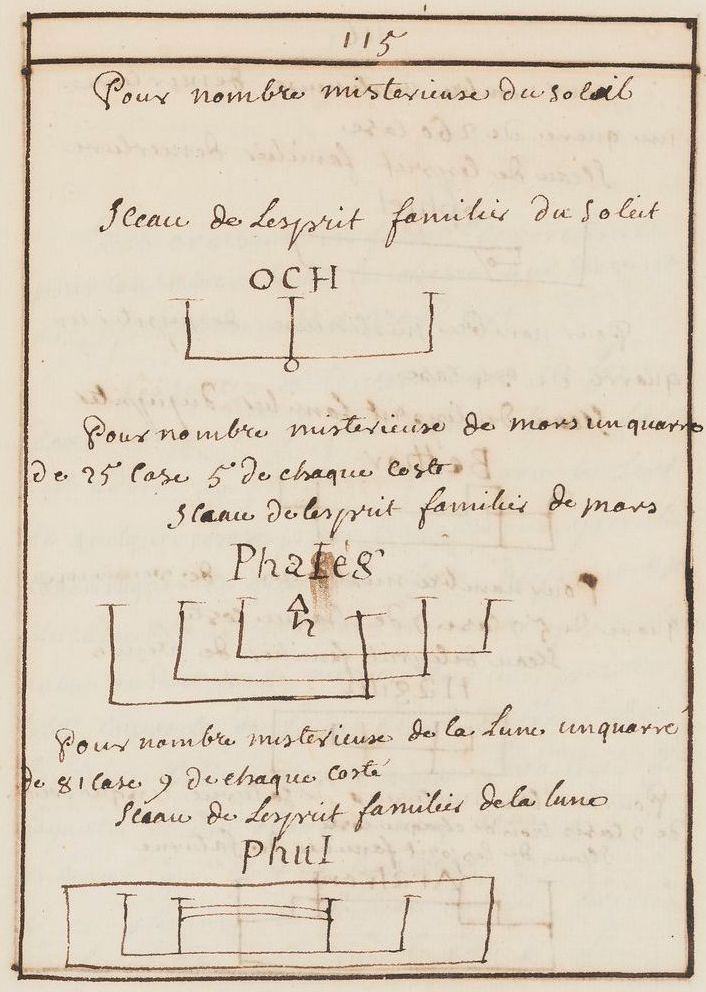 115
Pour nombre misterieuse du soleil
Sceau de Lesprit familier du Soleil
OCH
Pour nombre misterieuse de mars un quarre
de 25 Case 5 de chaque costé
Sceau de lesprit familier de mars
Phaleg
Pour nombre misterieuse de la Lune un quarré
de 81 Case 9 de chaque costé
Sceau de Lesprit familier de la lune
Phul